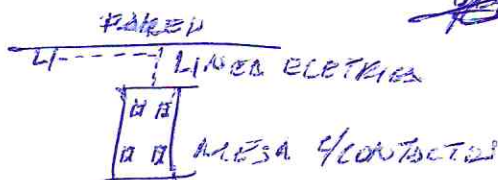 PARED
LINEA ELETRICA
MESA C/CONTACTOS